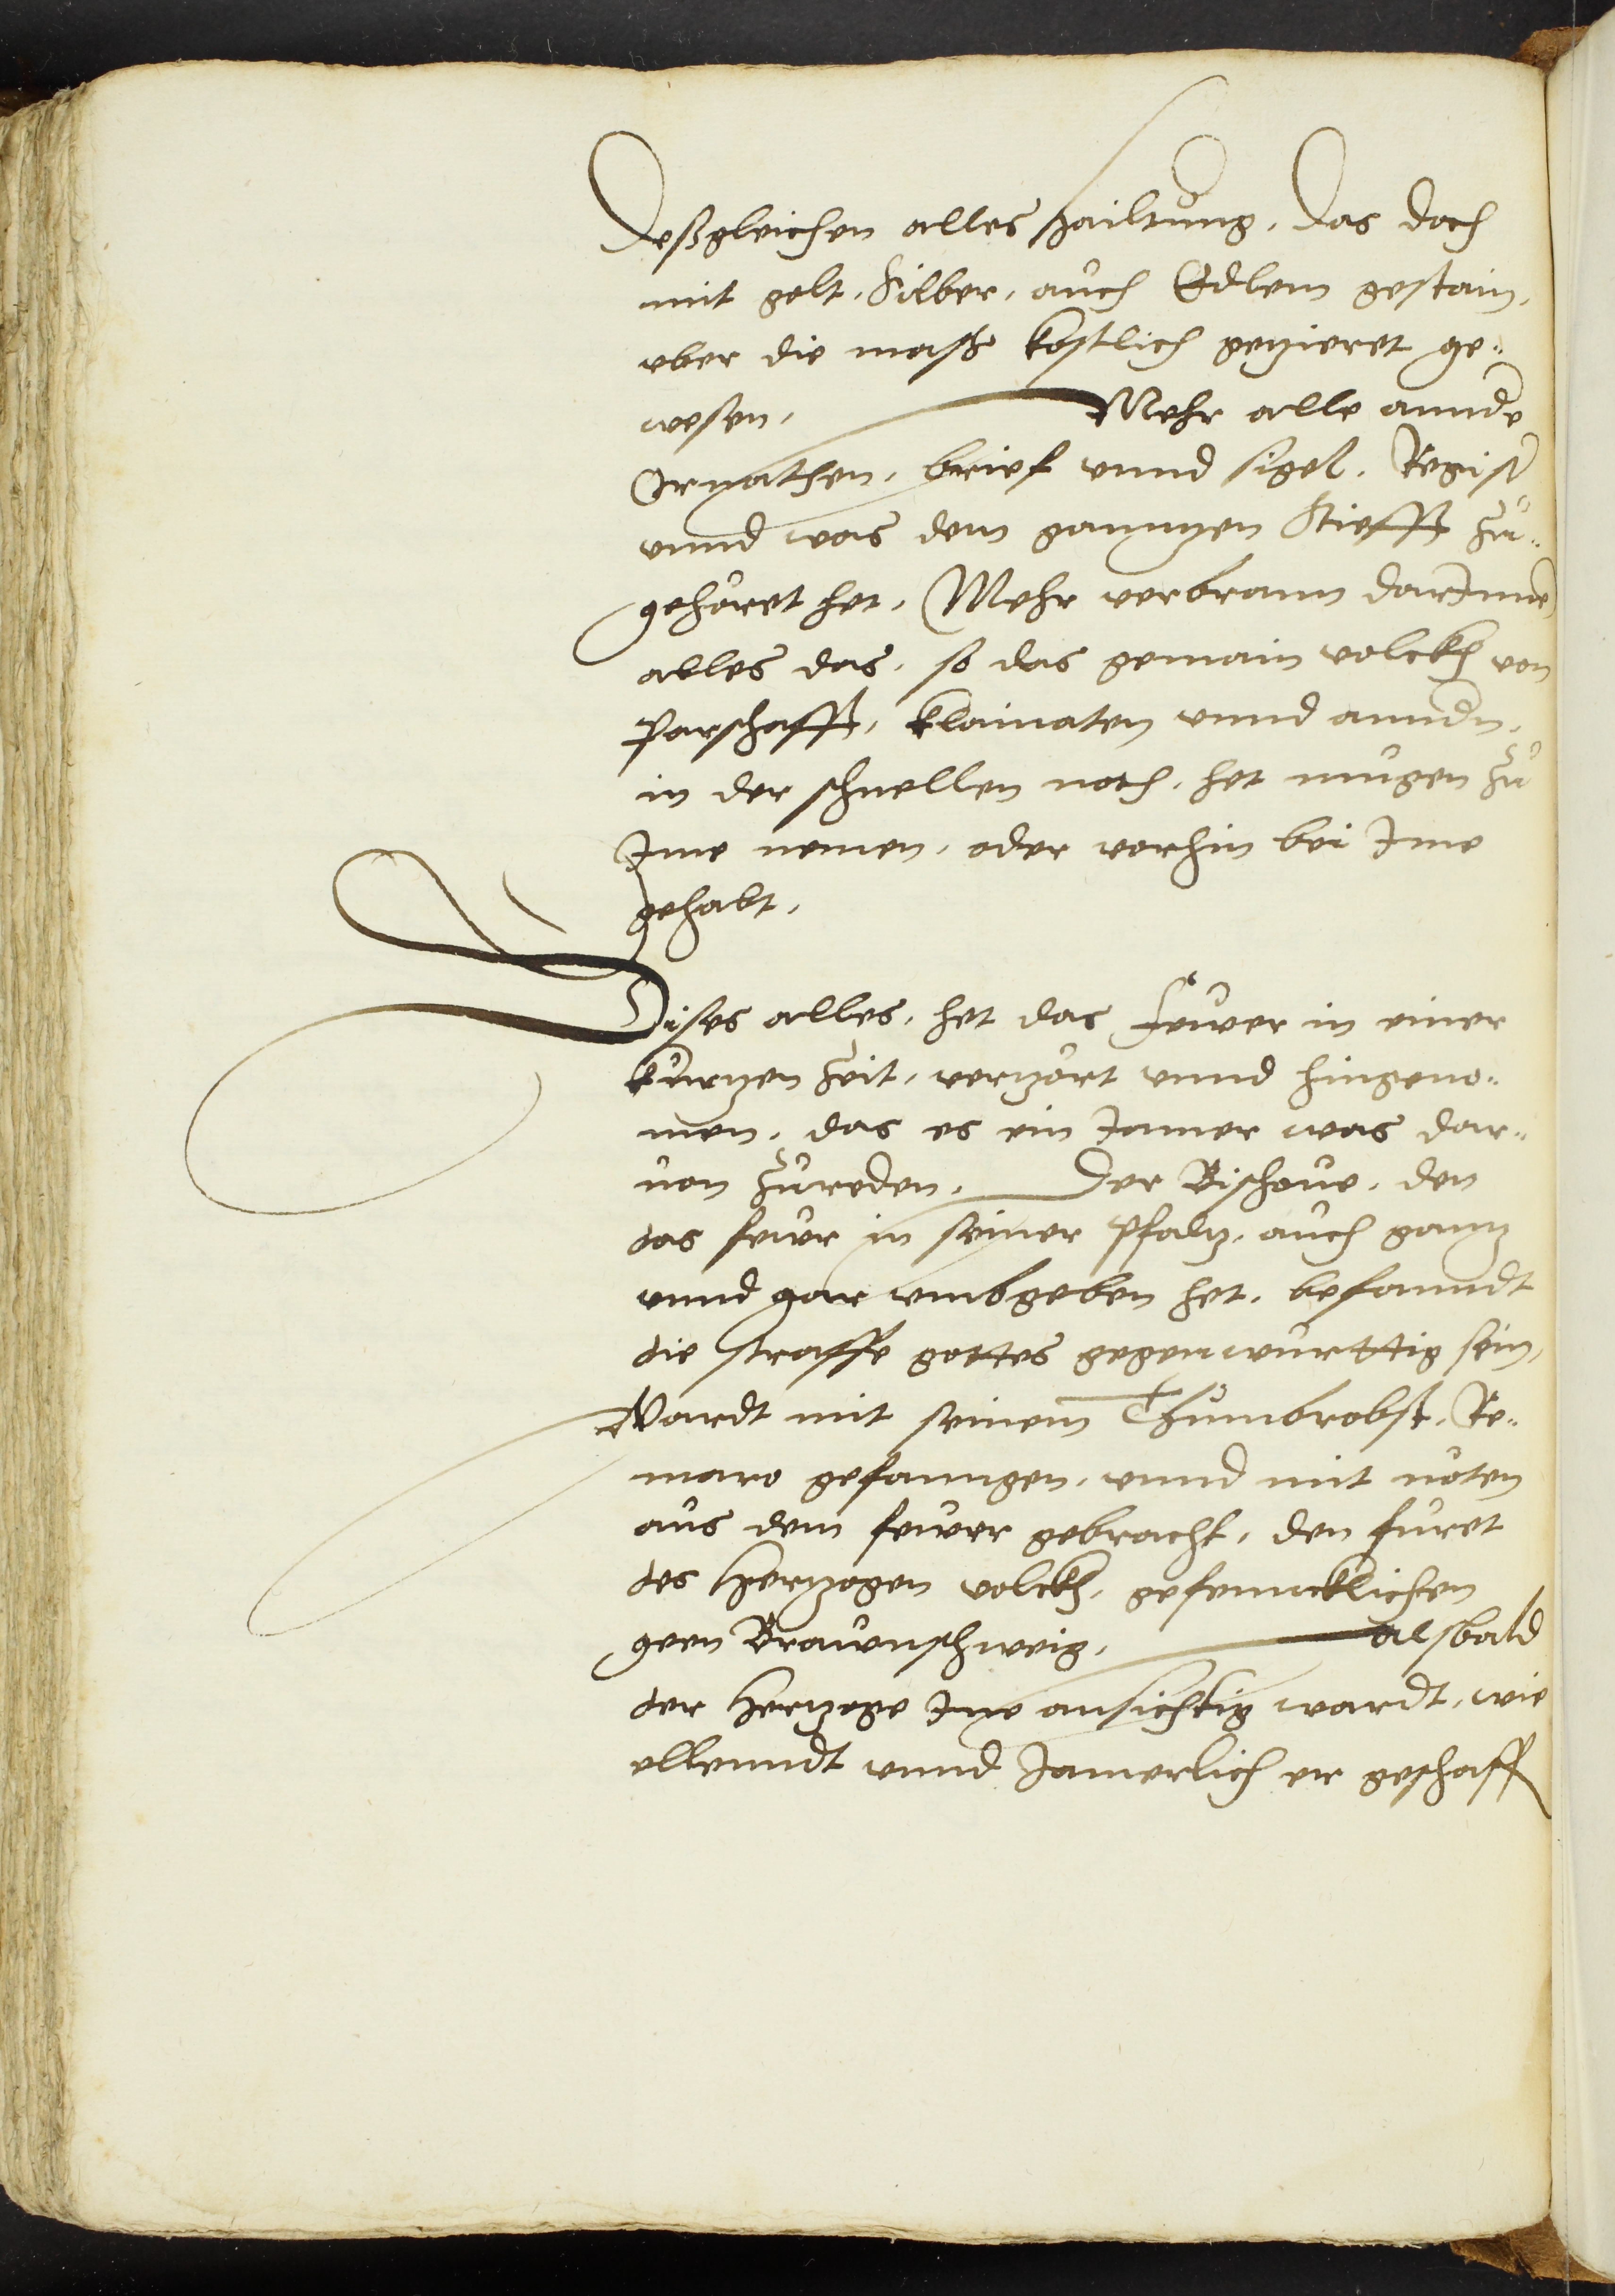 Deßgleichen alles hailtung, das doch
mit golt, Silber, auch Edlem gestain,
vber die massz kostlich getzieret ge¬
wesen, Mehr alle annde
Ornathen, brief vnnd sigel, Regist
vnnd was dem ganntzen Stiefft zu¬
gehöret het, Mehr verbrann darInne
alles das, so das gemain volckh von
Parschafft, klainaten vnnd anndn,
in der schnellen noth, het mugen zu
Ime nemen, oder vorhin bei Ime
gehabt,
Dises alles, het das fewer in einer
kurtzen Zeit, vertzört vnnd hingeno¬
men, das es ein Jamer was dar¬
uon zureden, Der Bischoue, den
das fewr in seiner Pfaltz, auch gantz
vnnd gar vmbgeben het, befanndt
die straffe gottes gegenwurttig sein,
Wardt mit seinem Thumbrobst, Re¬
maro gefanngen, vnnd mit nöten
aus dem fewer gebracht, den furet
des Hertzogen volckh, gefenncklichen
geen Brawnschweig, alsbald
der Hertzoge Ine ansichtig wardt, wie
ellenndt vnnd Jamerlich er geschaff